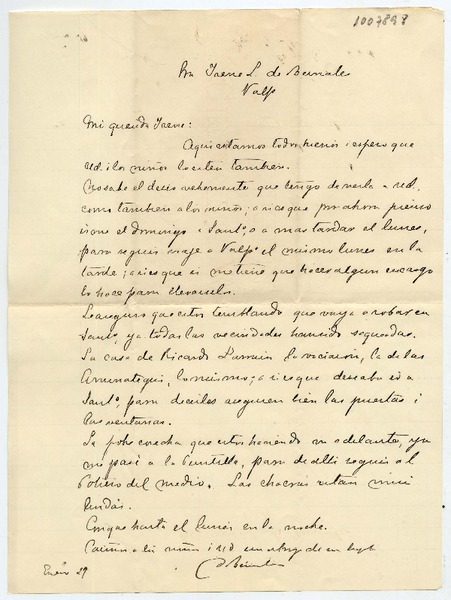 1007898
Sra Irene L de Bernales
Valpo
Mi querida Irene:
Aqui estamos todos buenos i espero que
Ud. i los niños lo esten tambien.
No sabe el deseo vehemente que tengo de verla a Ud.
como tambien a los niños; asi es que por ahora pienso
irme el domingo a Santo. o a mas tardar el lunes,
para seguir viaje a Valpo el mismo lunes en la
tarde; asi es que si me tiene que hacer algun encargo
para
Le aseguro que estoi temblando que vaya a robar en
Santo, ya todas las vecindades han sido saqueadas.
La casa de Ricardo Larrain la vaciaron, la de las
lo mismo; asi es que deseaba ir a
Santo, para decirles aseguren bien las puertas i
las ventanas.
La cosecha que estoi haciendo va adelante, ya
me pasé a la Puntilla, para de alli seguir al
Potrero del medio. Las chacras estan mui
lindas.
Conque hasta el lunes en la noche.
Cariños a los niños i Ud un abrazo de su
Enero 29